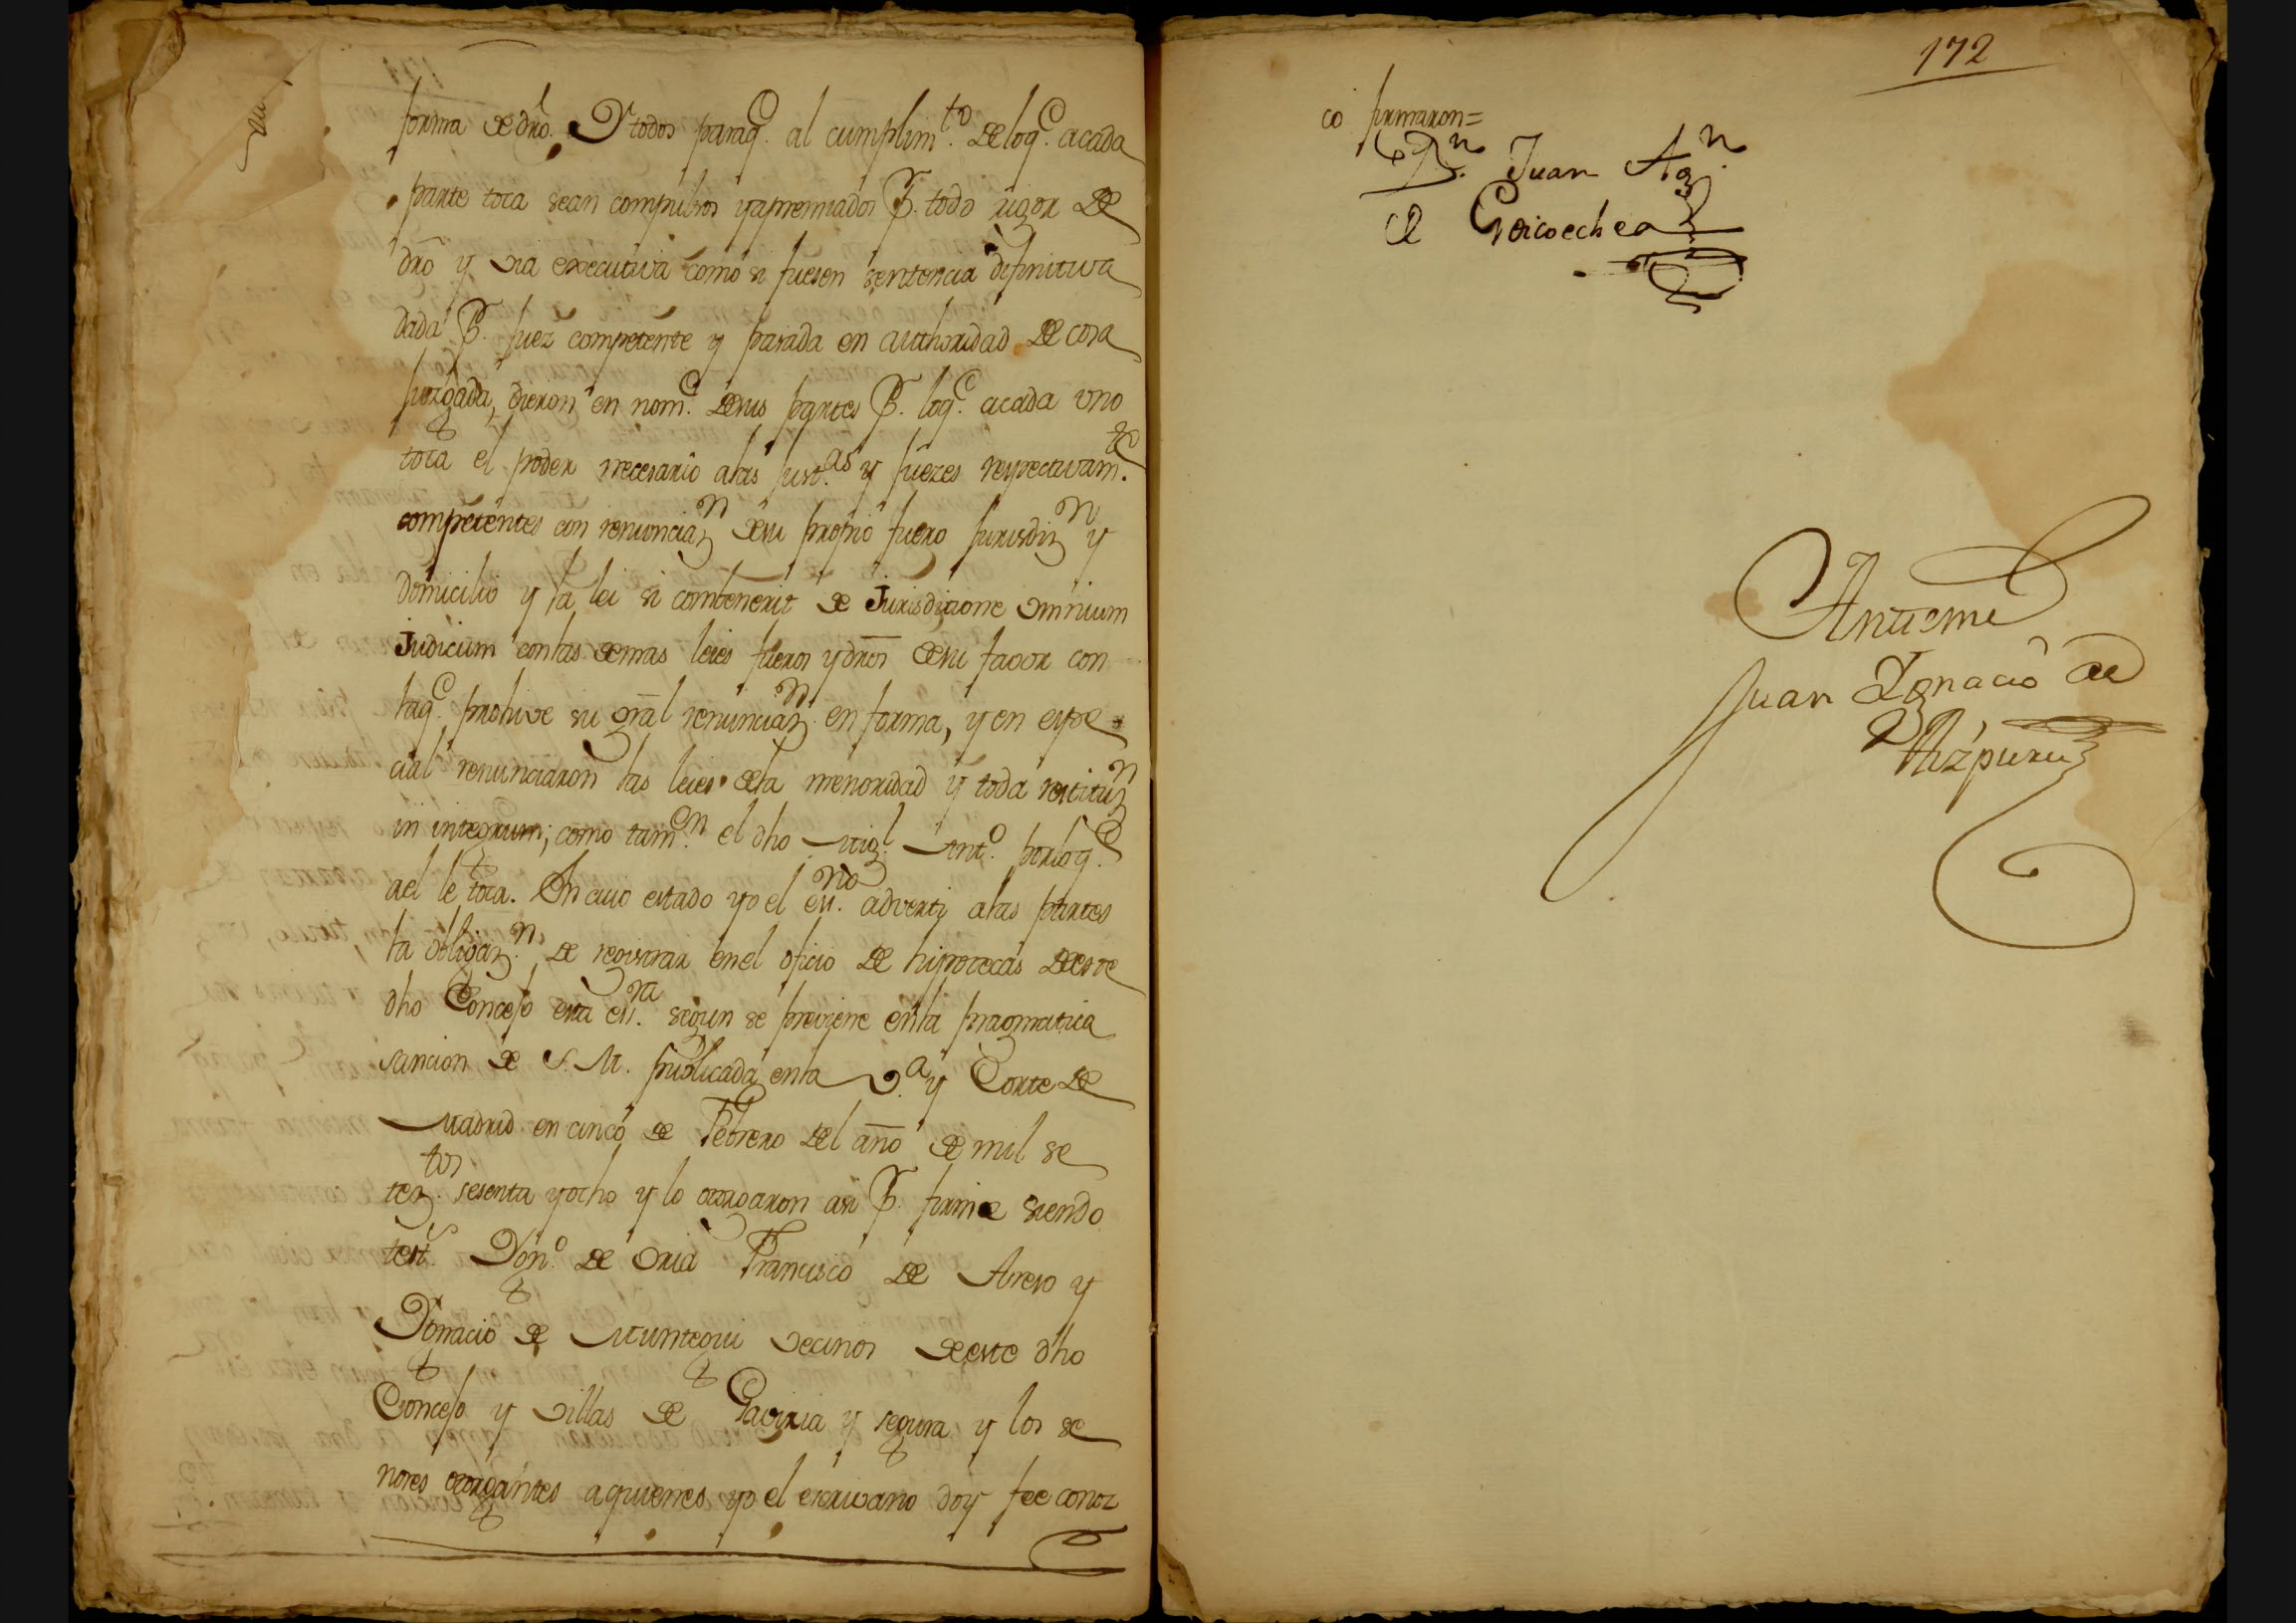 forma de dro. Y todos paraq.e al cumplim.to de loq.e acada
parte toca sean compulsos yapremiados P. todo rigor de
dro y via executiva como si fuesen sentencia difinitiva
dada P. Juez competente y pasada en authoridad de cosa
juzgada, dieron en nom.e desus partes P. loq.e acada uno
toca el poder necesario alas just.as y Juezes respectivam.te
competentes con renunciaz.n desu proprio fuero Jurisdiz.n y
Domicilio y la lei si combenerit de Jurisdicione omnium
Judicum conlas demas leies fueros ydros desu favor con
laq.e prohive su gral renunciaz.n en forma, y en espe=
cial renunciaron las leies dela menoridad y toda restituz.n
in integrum; como tam.en el dho Mig.l Ant.o porloq.e
ael le toca. En cuio estado yo el es.no adverti alas partes
la obligaz.n de registrar enel oficio de hipotecas deeste
dho Concejo esta es.ra segun se previene enla pragmatica
sancion de S. M. publicada enla V.a y Corte de
Madrid en cinco de Febrero del año de mil se
tez.tos sesenta yocho y lo otorgaron asi P. firme siendo
test.s Ygn.o de Oria Francisco de Areso y
Ygnacio de Muntegui vecinos deeste dho
Concejo y villas de Gaviria y segura y los se
nores otorgantes aquienes yo el escrivano doy fee conoz
172
co firmaron=
D.n Juan Ag.n
de Goicoechea
Antemi
Juan Ygnacio de
Aizpuru